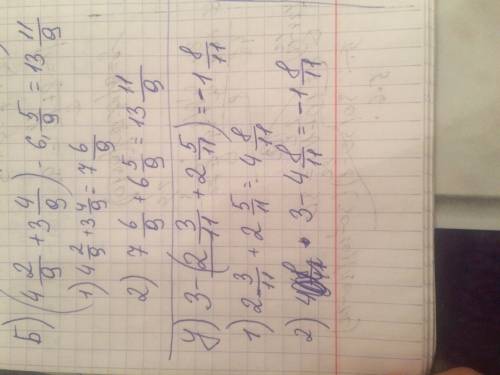 Б) (4 2/9 + 3 4/9) - 6, 5/9 = 13 11/9
1) 4 2/9 + 3 4/9 = 7 6/9
2) 7 6/9 + 6 5/9 = 13 11/9
У) 3 - (2 3/11 + 2 5/11) = -1 8/11
1) 2 3/11 + 2 5/11 = 4 8/11
2) 3 - 4 8/11 = -1 8/11